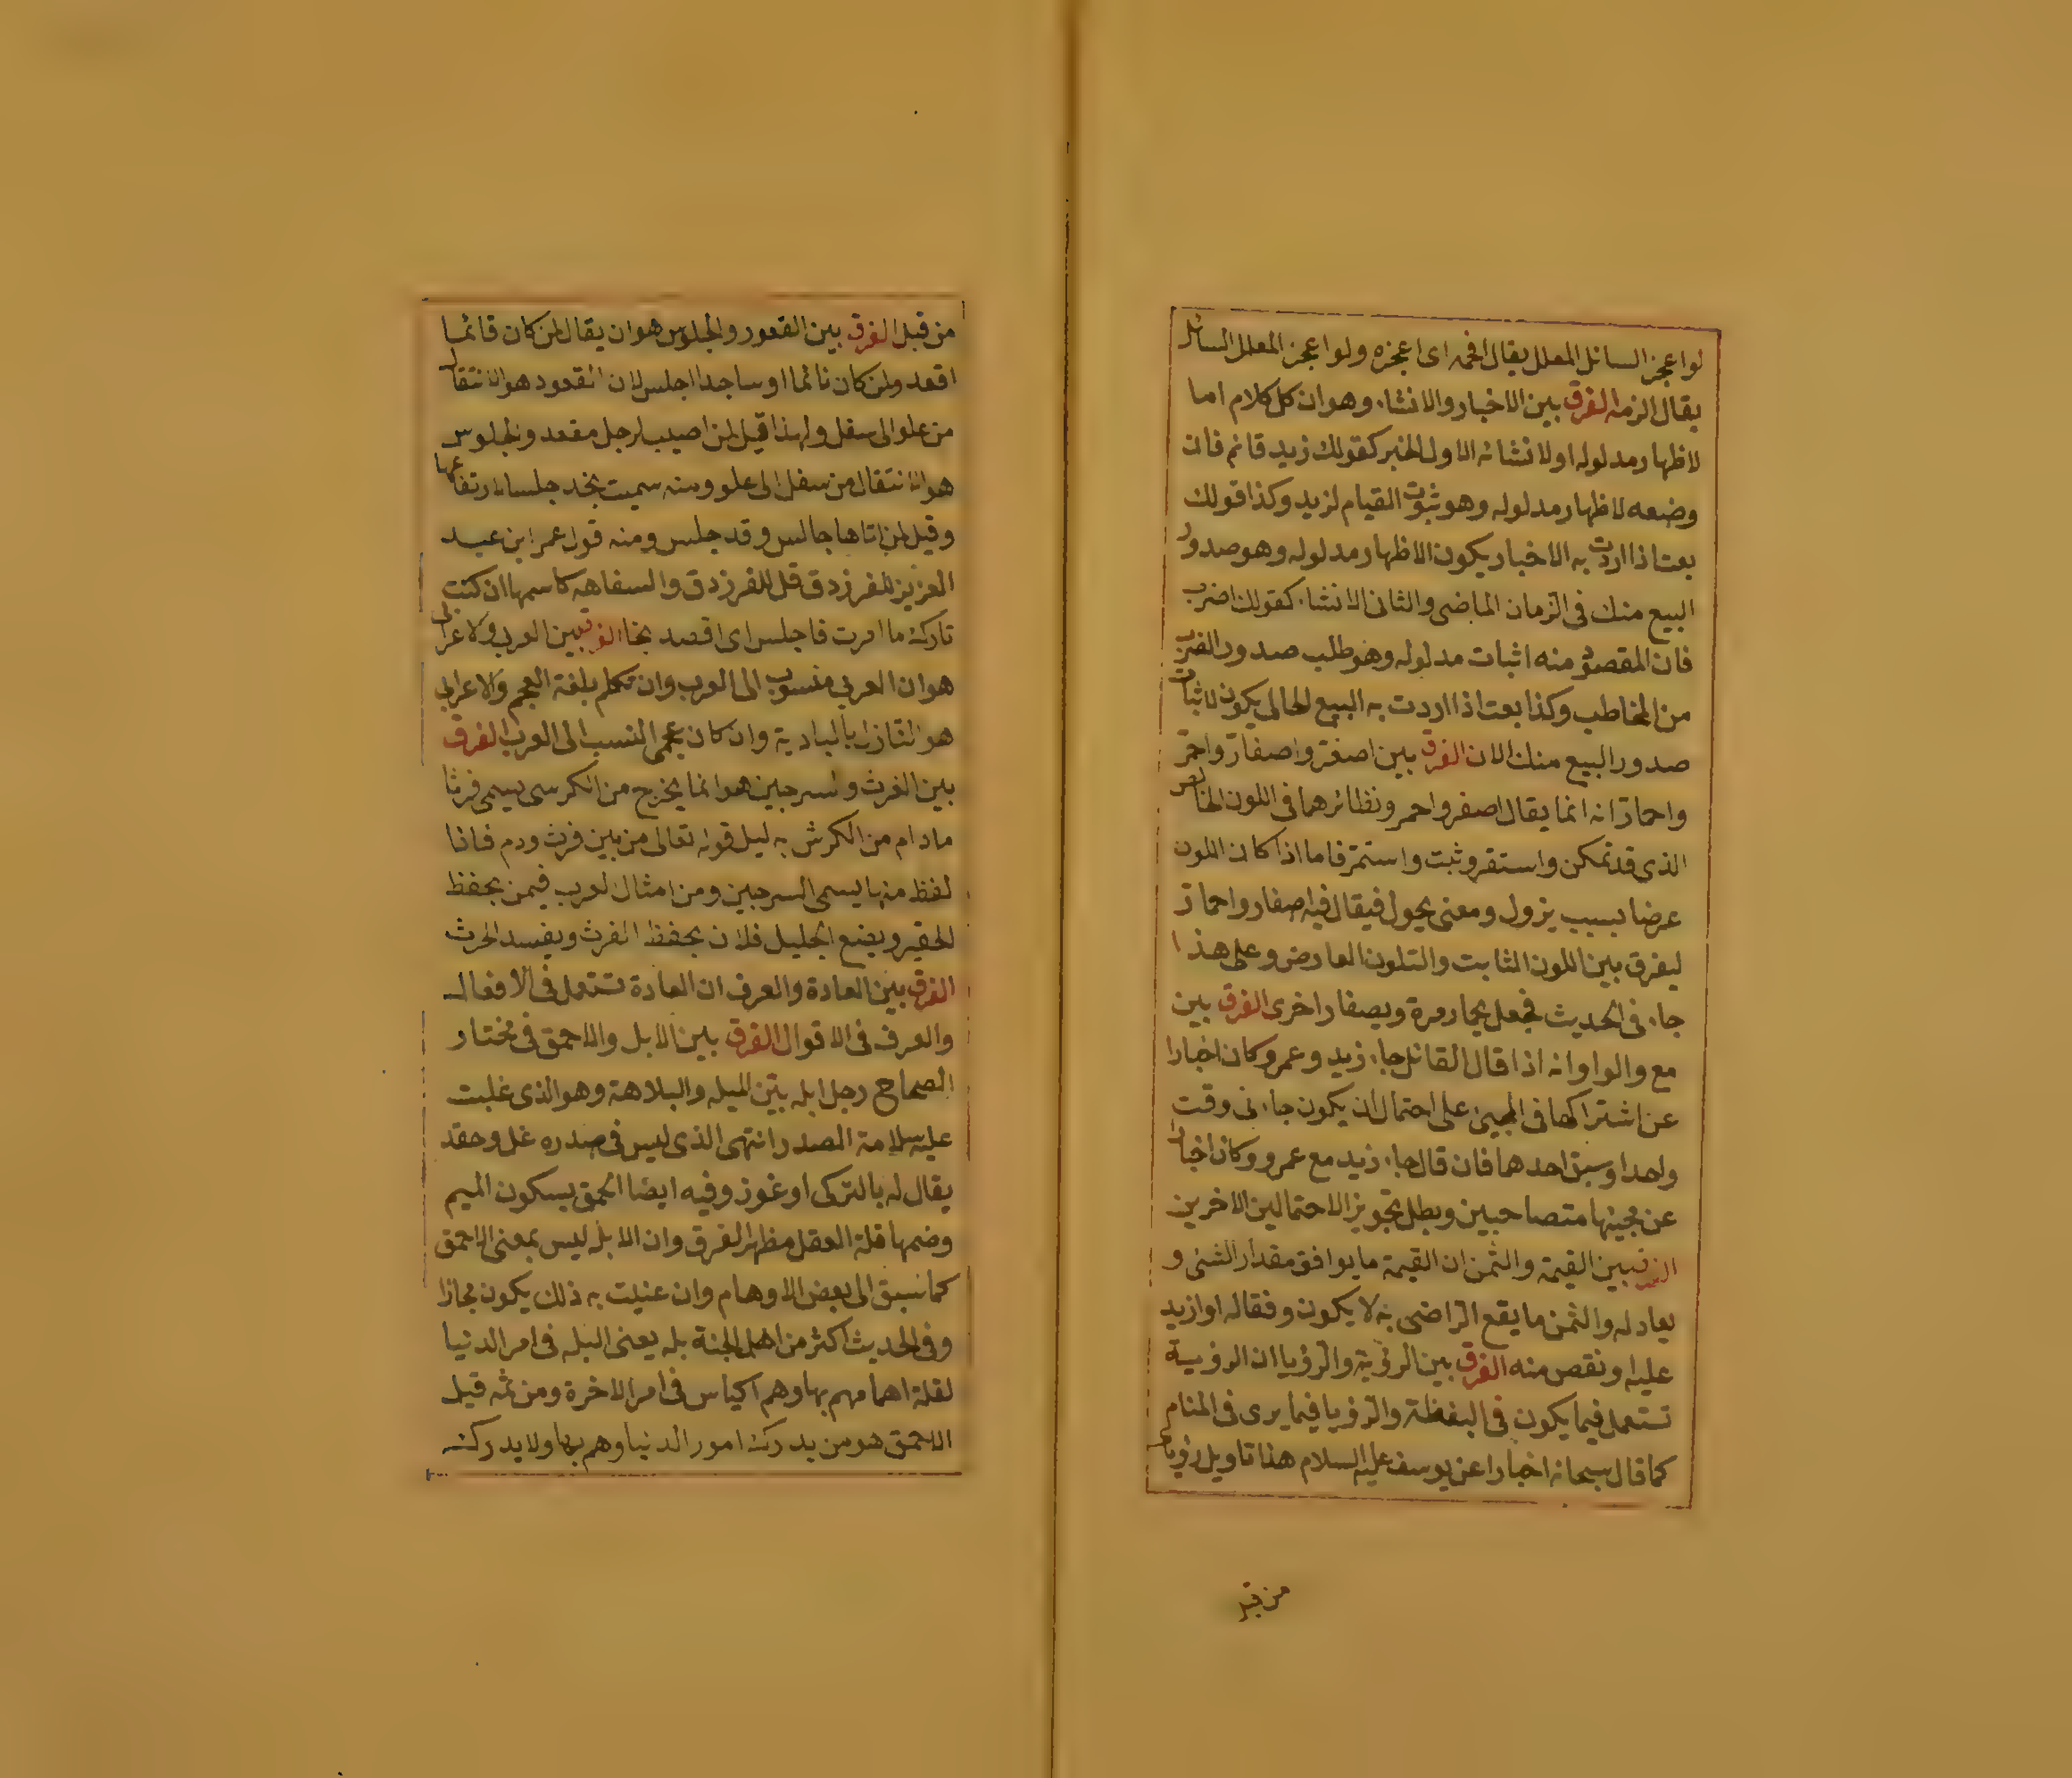 لو اعجز السائل المعلل يقال افحمه اى اعجزه ولو اعجز المعلل السائل
يقال الزمه الفرق بين الاخبار والانشاء وهو ان كل كلام اما
لاظهار مدلوله او لانشائه الاول الخبر كقولك زيد قائم فان
وضعه لاظهار مدلوله وهو ثبوت القيام لزيد وكذا قولك
بعت اذا اردت به الاخبار يكون الاظهار مدلوله وهو صدور
البيع منك فى الزمان الماضى والثانى الانشاء كقولك اضرب
فان المقصود منه اثبات مدلوله وهو طلب صدور الضرب
من المخاطب وكذا بعت اذا اردت به البيع الحالى يكون لاثبات
صدور البيع منك الان الفرق بين اصفر واصفار واحمر
واحمار انه انما يقال اصفر واحمر ونظائرهما فى اللون الخالص
الذى قد تمكن واستقر وثبت واستمر فاما اذا كان اللون
عرضا بسبب يزول ومعنى يحول فيقال فيه اصفار واحمار
ليفرق بين اللون الثابت والتلون العارض وعلى هذا
جاء فى الحديث فجعل يحمار مرة ويصفار اخرى الفرق بين
مع والواو انه اذا قال القائل جاء زيد وعمرو كان اخبارا
عن اشتراكهما فى المجيئ على احتمال ان يكون جاء فى وقت
واحد او سبق احدهما فان قال جاء زيد مع عمرو وكان اخبارا
عن مجيئهما متصاحبين وبطل تجويز الاحتمالين الاخرين
الفرق بين القيمة والثمن ان القيمة ما يوافق مقدار الشئ و
يعادله والثمن ما يقع الراضى به لا يكون وفقا له او ازيد
عليه او نقص منه الفرق بين الرؤية والرؤيا ان الرؤية
تستعمل فيما يكون فى اليقظة والرؤيا فيما يرى فى المنام
كما قال سبحانه اخبارا عن يوسف عليه السلام هذا تاويل رؤياى
من قبل
من قبل الفرق بين القعود والجلوس هو ان يقال لمن كان قائما
اقعد ولمن كان نائما او ساجدا اجلس لان القعود هو الانتقال
من علو الى سفل ولهذا قيل لمن اصيب لرجل مقعد والجلوس
هو الانتقال من سفل الى علو ومنه سميت نجد جلسا لارتفاعها
وقيل لمن اتاها جالس وقد جلس ومنه قول عمر ابن عبد
العزيز للفرزدق قل للفرزدق والسفاهه كاسمها ان كنت
تارك ما امرت فاجلس اى اقصد نجدا الفرق بين العرب والاعرابى
هو ان العربى منسوب الى العرب وان تكلم بلغة العجم والاعرابى
هو النازل بالبادية وان كان عجمى النسب الى العرب الفرق
بين الفرث والسرجين هو انما يخرج من الكرسى يسمى فرثا
مادام من الكرش بدليل قوله تعالى من بين فرث ودم فاذا
لفظ منها يسمى السرجين ومن امثال العرب فيمن يحفظ
الحقير ويضع الجليل فلان يحفظ الفرث ويفسد الحرث
الفرق بين العادة والعرف ان العادة تستعمل فى الافعال
والعرف فى الاقوال الفرق بين الابل والاحمق فى مختار
الصحاح رجل ابله بين الميله والبلاهة وهو الذى غلبت
عليه سلامة الصدر انتهى الذى ليس فى صدره غل وحقد
يقال له بالتركى اوغوز وفيه ايضا الحمق بسكون الميم
وضمها قلة العقل مظهر الفرق وان الابله ليس بمعنى الاحمق
كما سبق الى بعض الاوهام وان عنيت به ذلك يكون مجازا
وفى الحديث اكثر من اهل الجنة بله يعنى البله فى امر الدنيا
لقلة اهمامهم بها وهم اكياس فى امر الاخرة ومن ثمه قيل
الاحمق هو من يدرك امور الدنيا وهم بها ولا يدرك